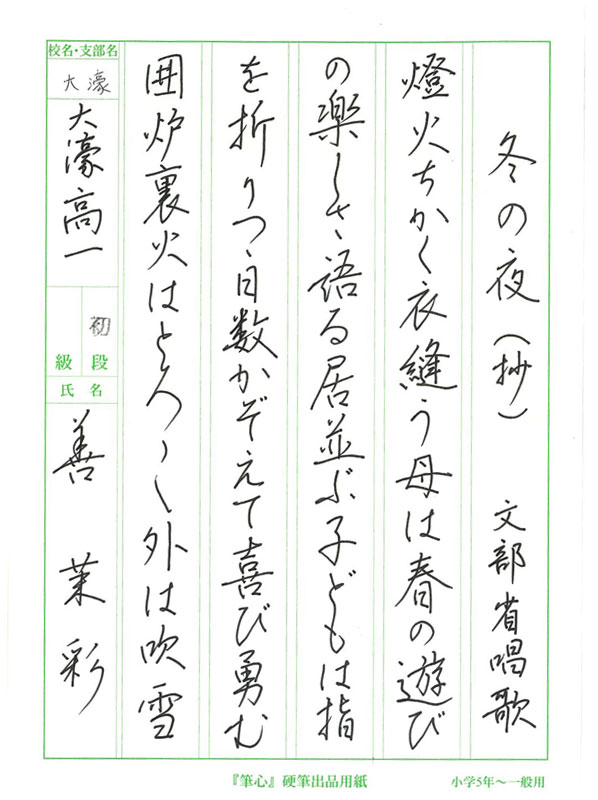 冬の夜（抄）　文部省唱歌
燈火ちかく衣縫う母は春の遊び
の楽しさ語る居並ぶ子どもは指
を折りつゝ日数かぞえて喜び勇む
囲炉裏火はとろ〱外は吹雪
校名・支部名
大濠
大濠高一
初
段
級
氏名
善　茉彩
『筆心』硬筆出品用紙
小学5年〜一般用